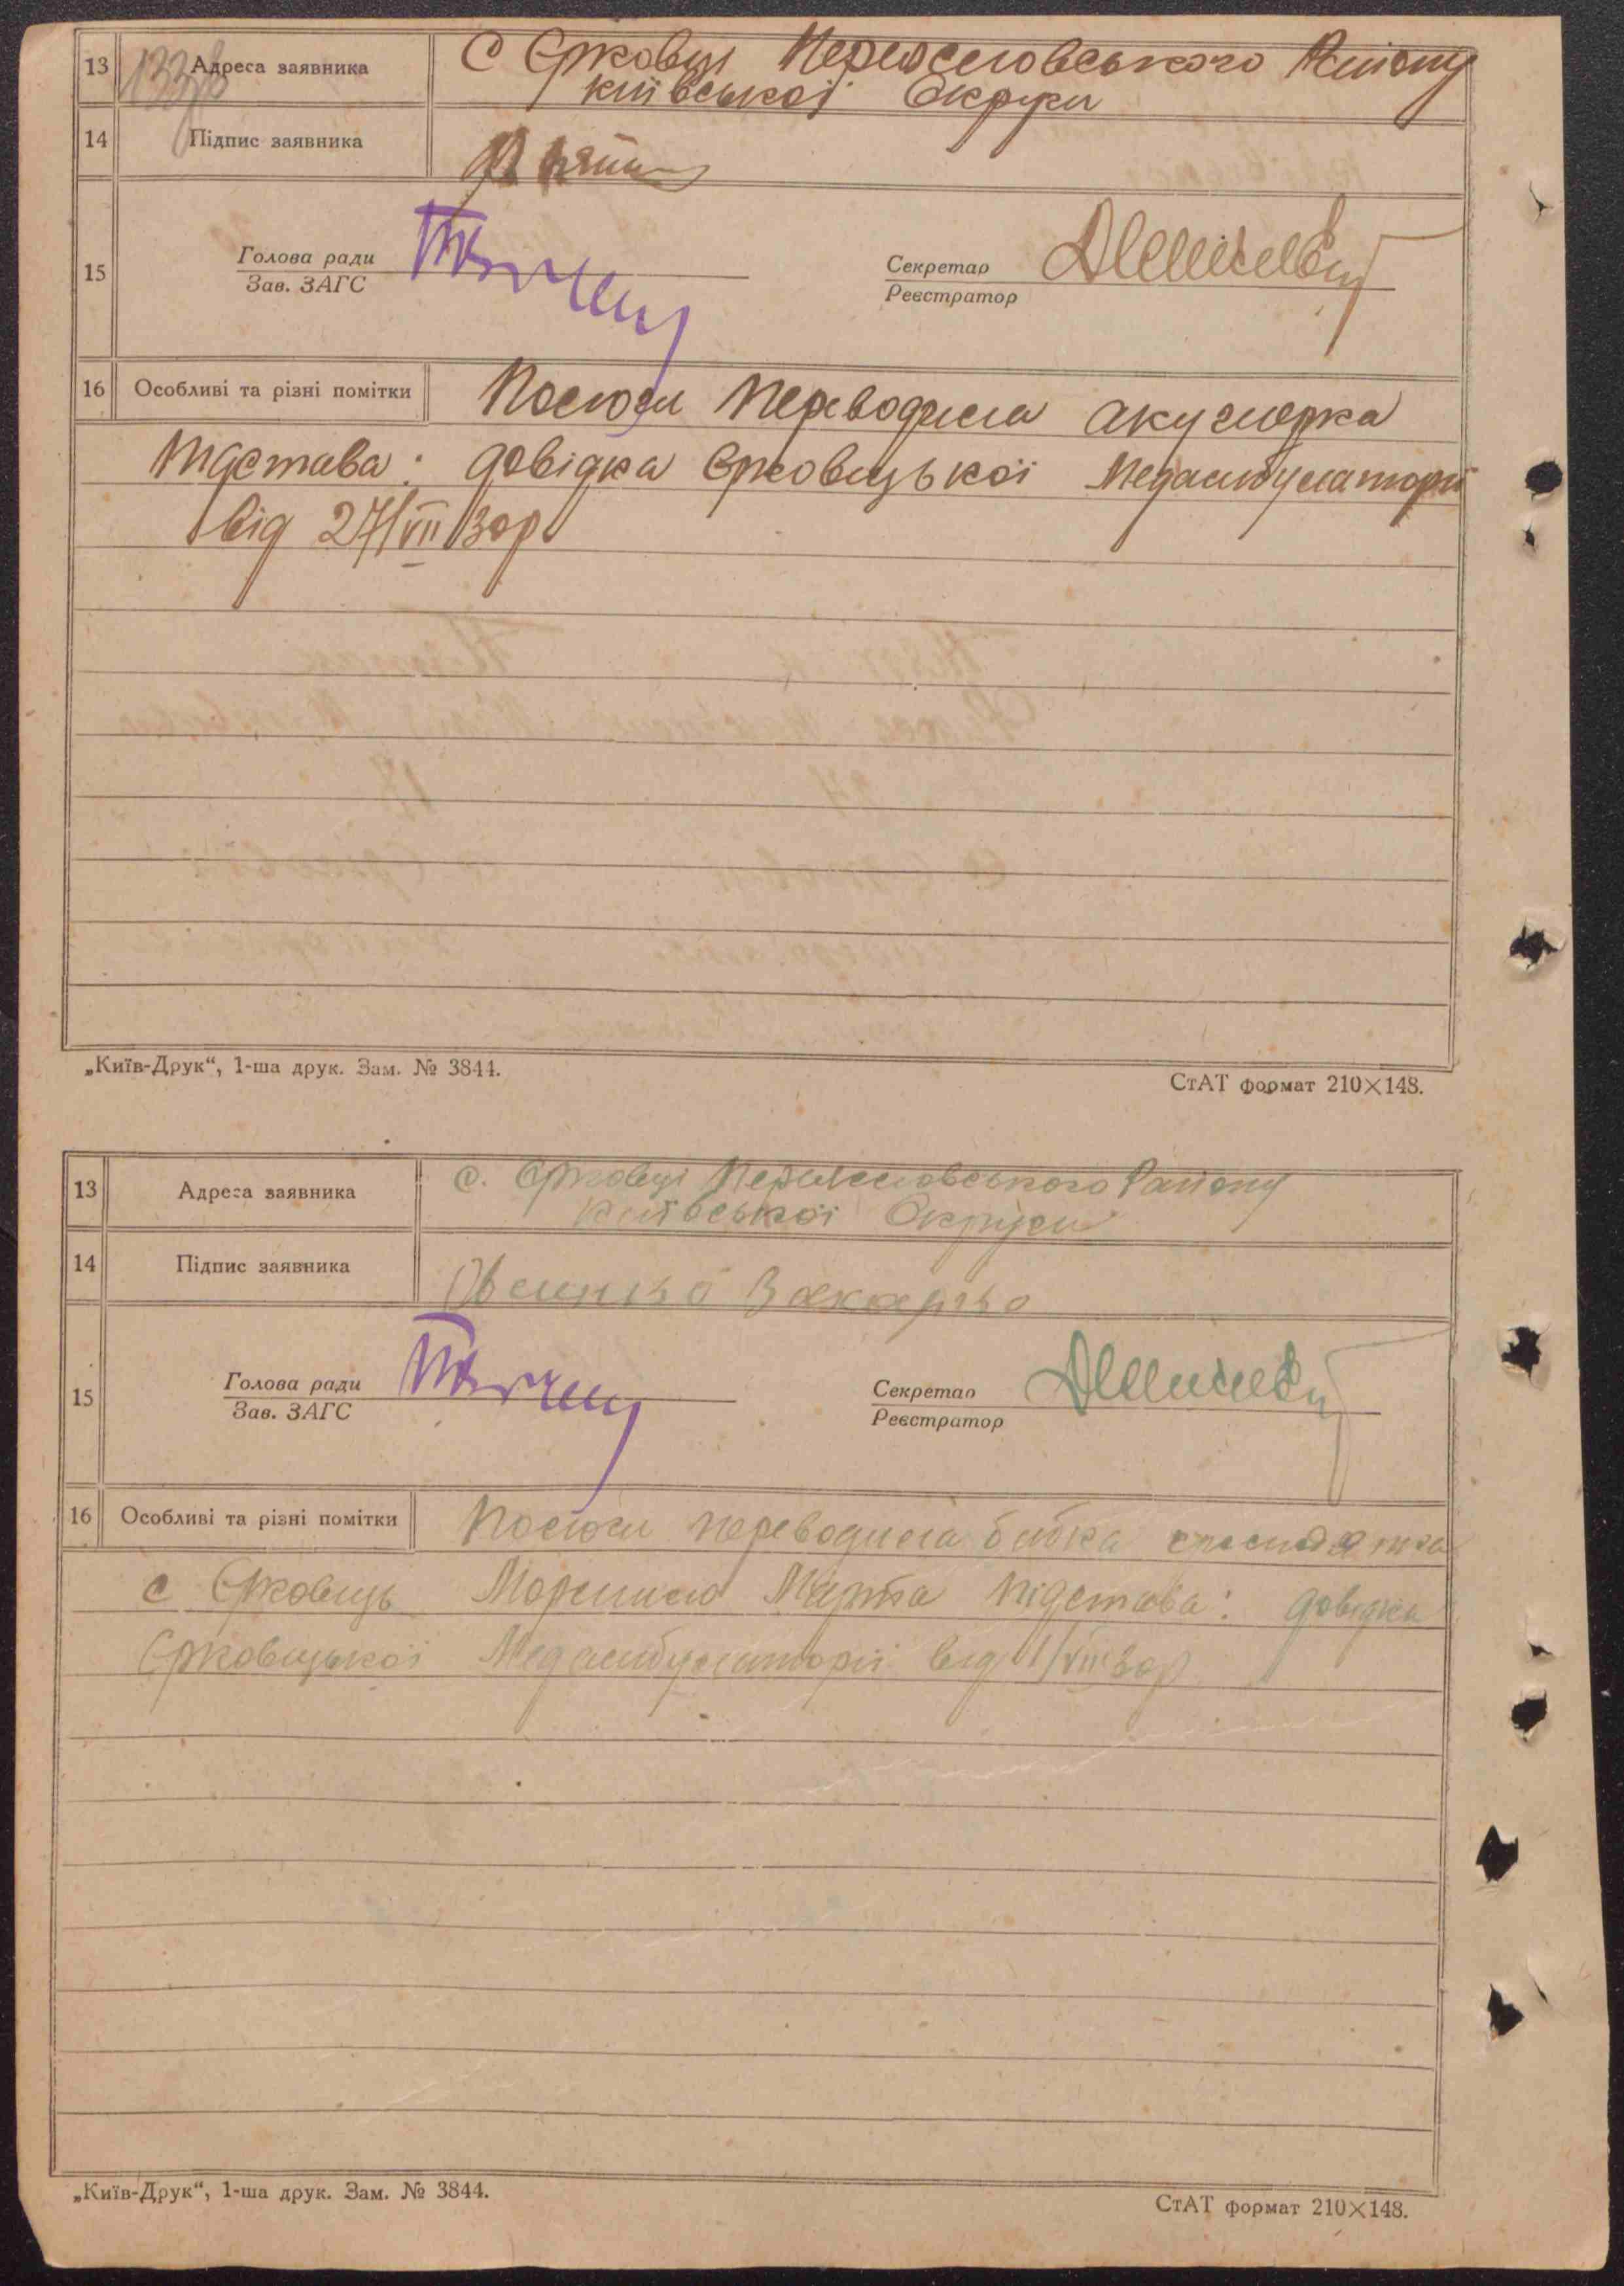 13 Адреса заявника С Єрковці Переяселовського Району
133зв Київської Округи
14 Підпис заявника
15 Голова ради Секретар
Зав. ЗАГС Реєстратор
16 Особливі та різні помітки Пологи переводила акушерка
Підстава: довідка Єрковецької Медамбулаторії
від 27/VII 30р
„Київ-Друк“, 1-ша друк. Зам. № 3844.
СтАТ формат 210×148.
13 Адреса заявника С. Єрковці Переяселовського Району
Київської Округи
14 Підпис заявника
15 Голова ради Секретар
Зав. ЗАГС Реєстратор
16 Особливі та різні помітки Пологи переводила бабка
с Єрковець Марта Підстава: довідка
Єрковецької Медамбулаторії від 1/VIII 30р
„Київ-Друк“, 1-ша друк. Зам. № 3844.
СтАТ формат 210×148.